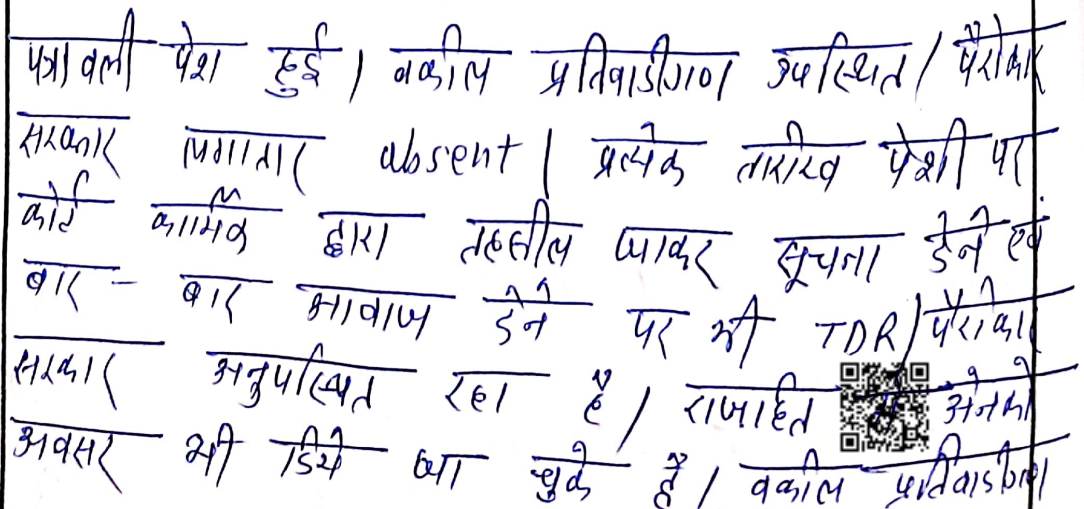 पत्रावली पेश हुई। वकील प्रतिवादीगण उपस्थित। पैरोकार
सरकार लगातार absent। प्रत्येक तारीख पेशी पर
कोर्ट कार्मिक द्वारा तहसील जाकर सूचना देने एवं
बार - बार आवाज देने पर भी TDR/पैरोकार
सरकार अनुपस्थित रहा है। राजहित में अनेको
अवसर भी दिये जा चुके हैं। वकील प्रतिवादीगण